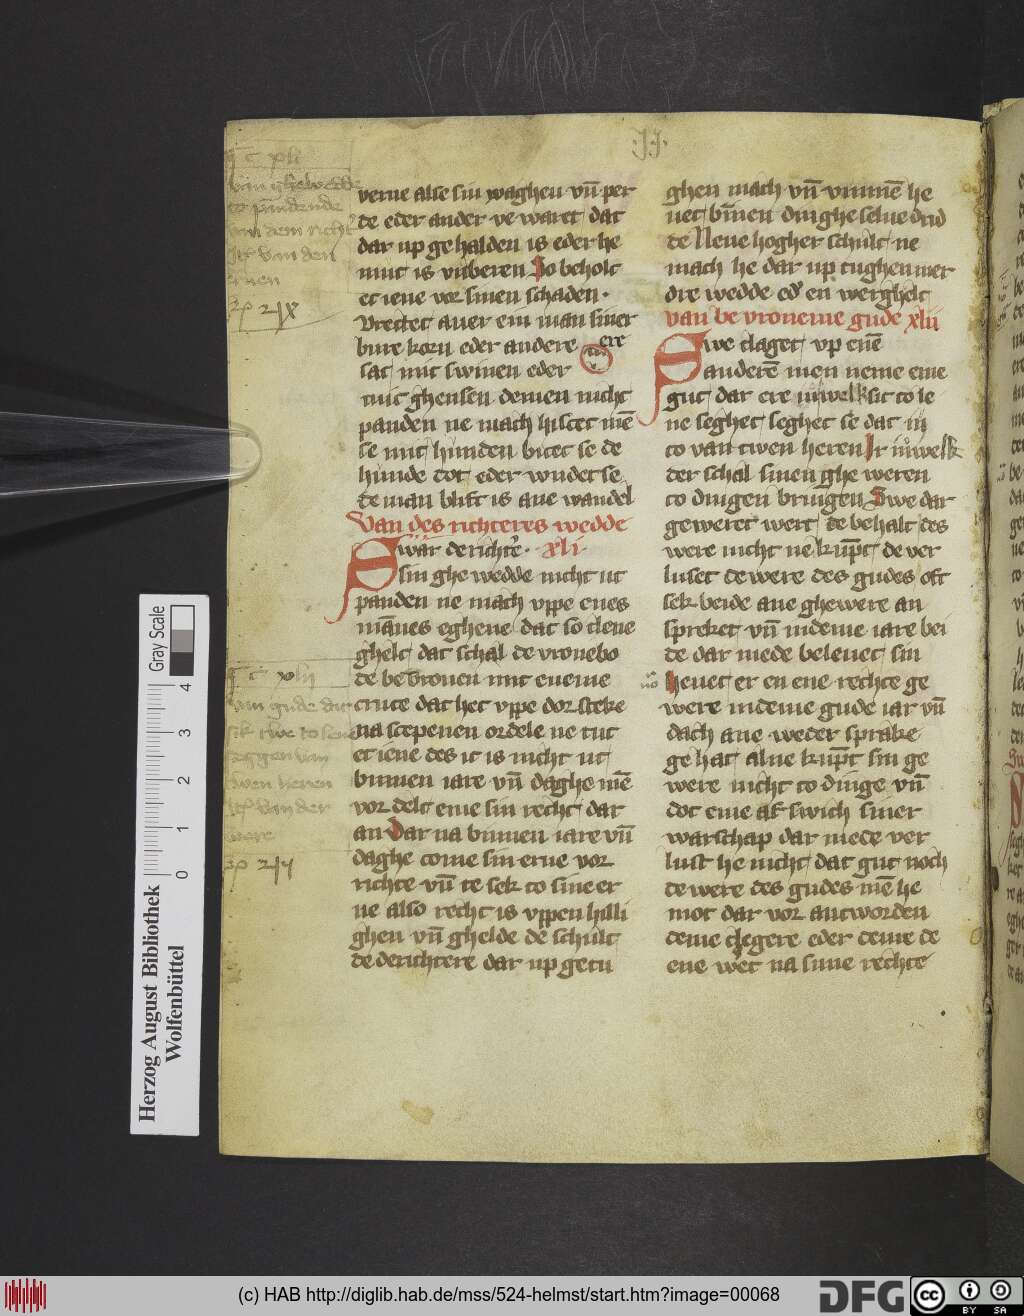 ·II·
verne alse sin waghen vn̄ per
de eder ander ve waret dat
dar up ge halden is eder he
mut is vnberen So beholt
et iene vor sinen schaden·
Vretet auer ein man siner
bure korn eder andere ere
sat mit swinen eder
mit ghensen demen nicht
panden ne mach histet mē
se mit hunden bitet se de
hunde dot eder wndet se
de man blift is ane wandel
Van des richteres wedde
Swar de richte͛ · xli ·
sin ghe wedde nicht ut
panden ne mach vppe enes
mānes eghene dat so clene
ghelt dat schal de vronebo
de be vronen mit eneme
cruce dat het vppe dor steke
na scepenen ordele ne tut
et iene des it is nicht ut
binnen iare vn̄ daghe mē
vor delt eme sin recht dar
an Dar na binnen iare vn̄
daghe come sin erue vor
richte vn̄ te sek to sine er
ne also recht is vppen hilli
ghen vn̄ ghelde de schult
de de richtere dar up getu
ghen mach vn̄ vmmē he
uet binen dinghe selue drid
de Neue hogher schult ne
mach he dar up tughen mer
dre wedde ed͛ en werghelt
van be vroneme gude xlii
Swe claget vp enē
anderē men neme eme
gut dar ere iuwelk sit to te
ne seghet seghet se dat in
to van twen heren Ir iuwelk
der schal sinen ghe weren
to dingen bringen Swe dar
geweret wert de behalt des
were nicht ne kūpt de ver
luset de were des gudes oft
sek beide ane ghewere an
spreket vn̄ indeme iare bei
de dar mede beleuet sin
heuet er en ene rechte ge
were indeme gude iar vn̄
dach ane weder sprake
ge hat alne kūpt sin ge
were nicht to dinge vn̄
dot eme af swich siner
warschap dar mede ver
lust he nicht dat gut noch
de were des gudes mē he
mot dar vor antworden
deme clegere eder deme de
ene wēt na sune rechte
Herzog August Bibliothek
Wolfenbüttel
0 1 2 3 4
Gray Scale
(c) HAB http://diglib.hab.de/mss/524-helmst/start.htm?image=00068
DFG
cc BY SA